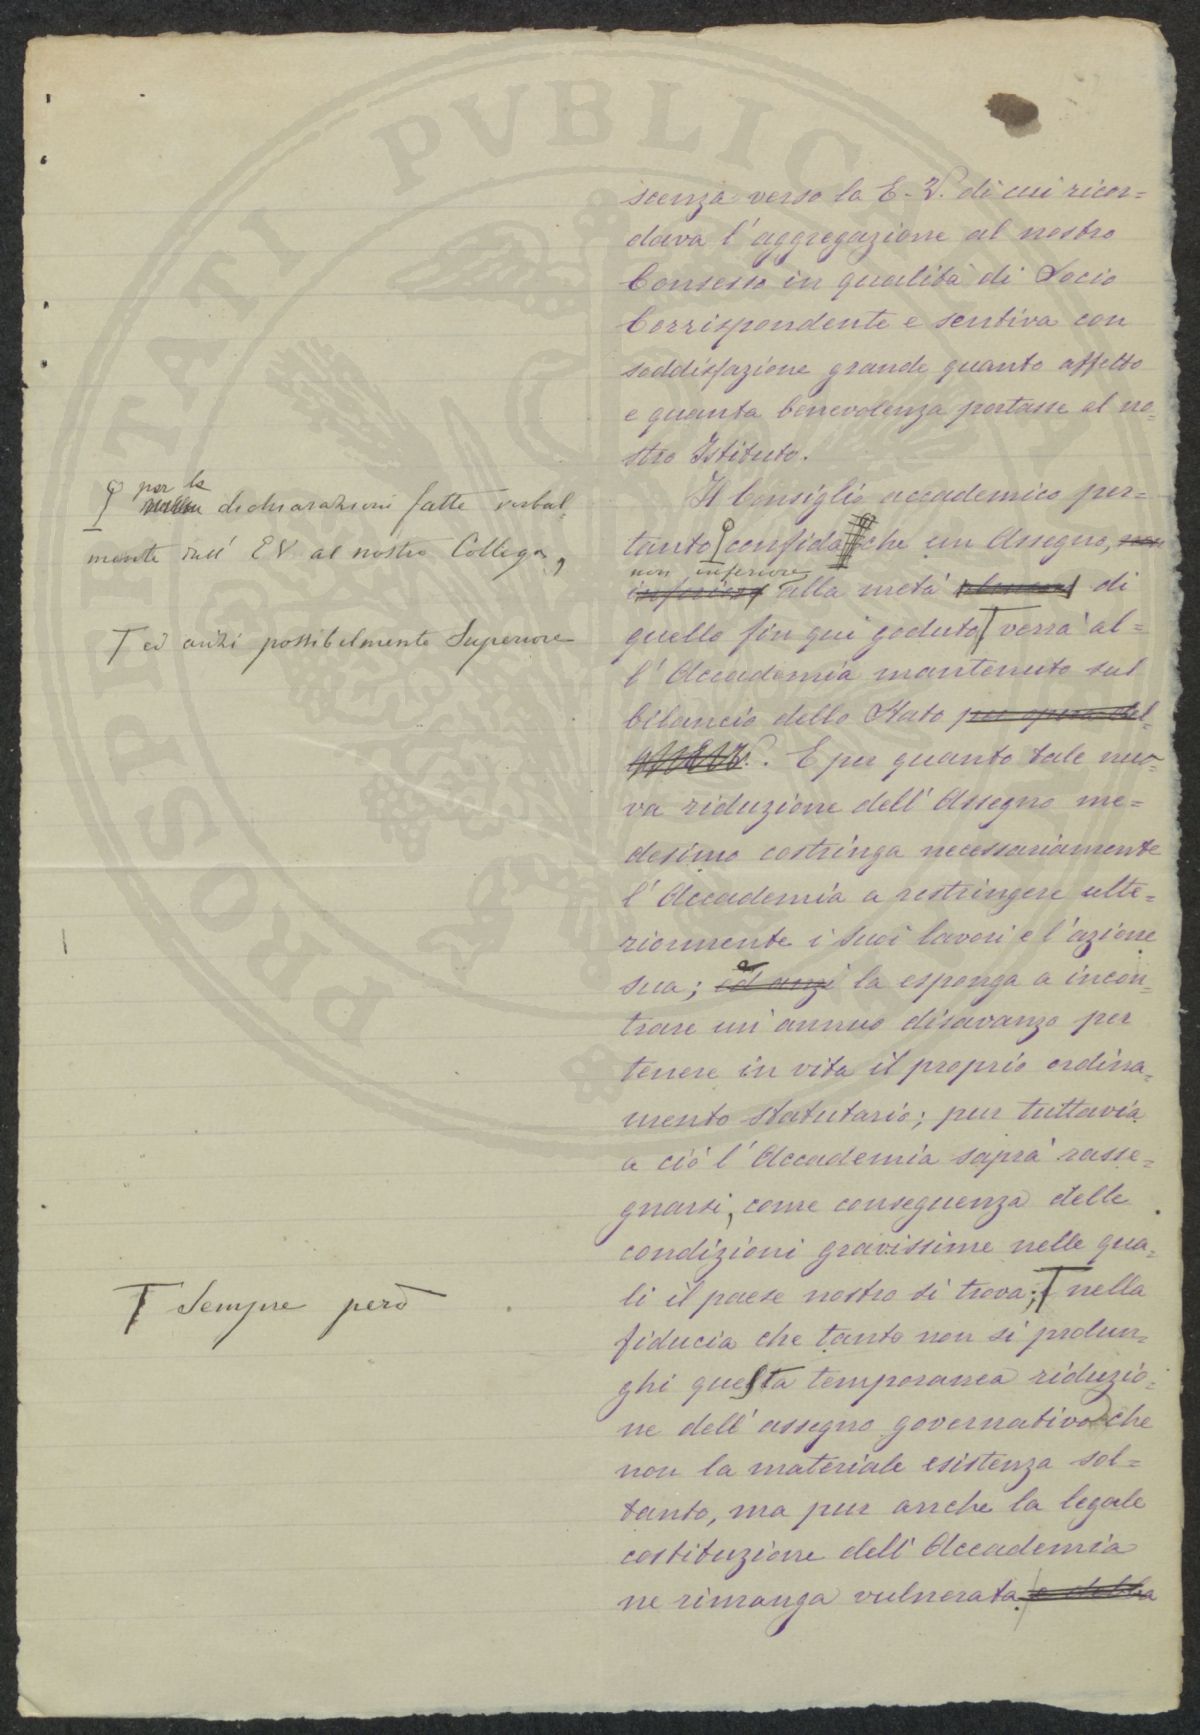 PROSPERITATI PVBLICAE
scenza verso la E. V. di cui ricor=
dava l'aggregazione al nostro
Consesso in qualità di Socio
Corrispondente e sentiva con
soddisfazione grande quanto affetto
e quanta benevolenza portasse al no=
stro Istituto.
Il Consiglio accademico per=
tanto confida che un Assegno, non
non inferiore
inferiore alla metà di
quello fin qui goduto T verrà al=
l'Accademia mantenuto sul
bilancio dello Stato per opera del=
l'E. V. . E per quanto tale nuo=
va riduzione dell'Assegno me=
desimo costringa necessariamente
l'Accademia a restringere ulte=
riormente i suoi lavori e l'azione
sua; e
ed anzi la esponga a incon=
trare un'annuo disavanzo per
tenere in vita il proprio ordina=
mento statutario; pur tuttavia
a ciò l'Accademia saprà rasse=
gnarsi, come conseguenza delle
condizioni gravissime nelle qua=
li il paese nostro si trova; T nella
fiducia che tanto non si prolun=
ghi questa temporanea riduzio=
ne dell'assegno governativo che
non la materiale esistenza sol=
tanto, ma pur anche la legale
costituzione dell'Accademia
ne rimanga vulnerata. e debba
per le
dichiarazioni fatte verbal=
mente dall' E V. al nostro Collega,
T ed anzi possibilmente superiore
T Sempre però